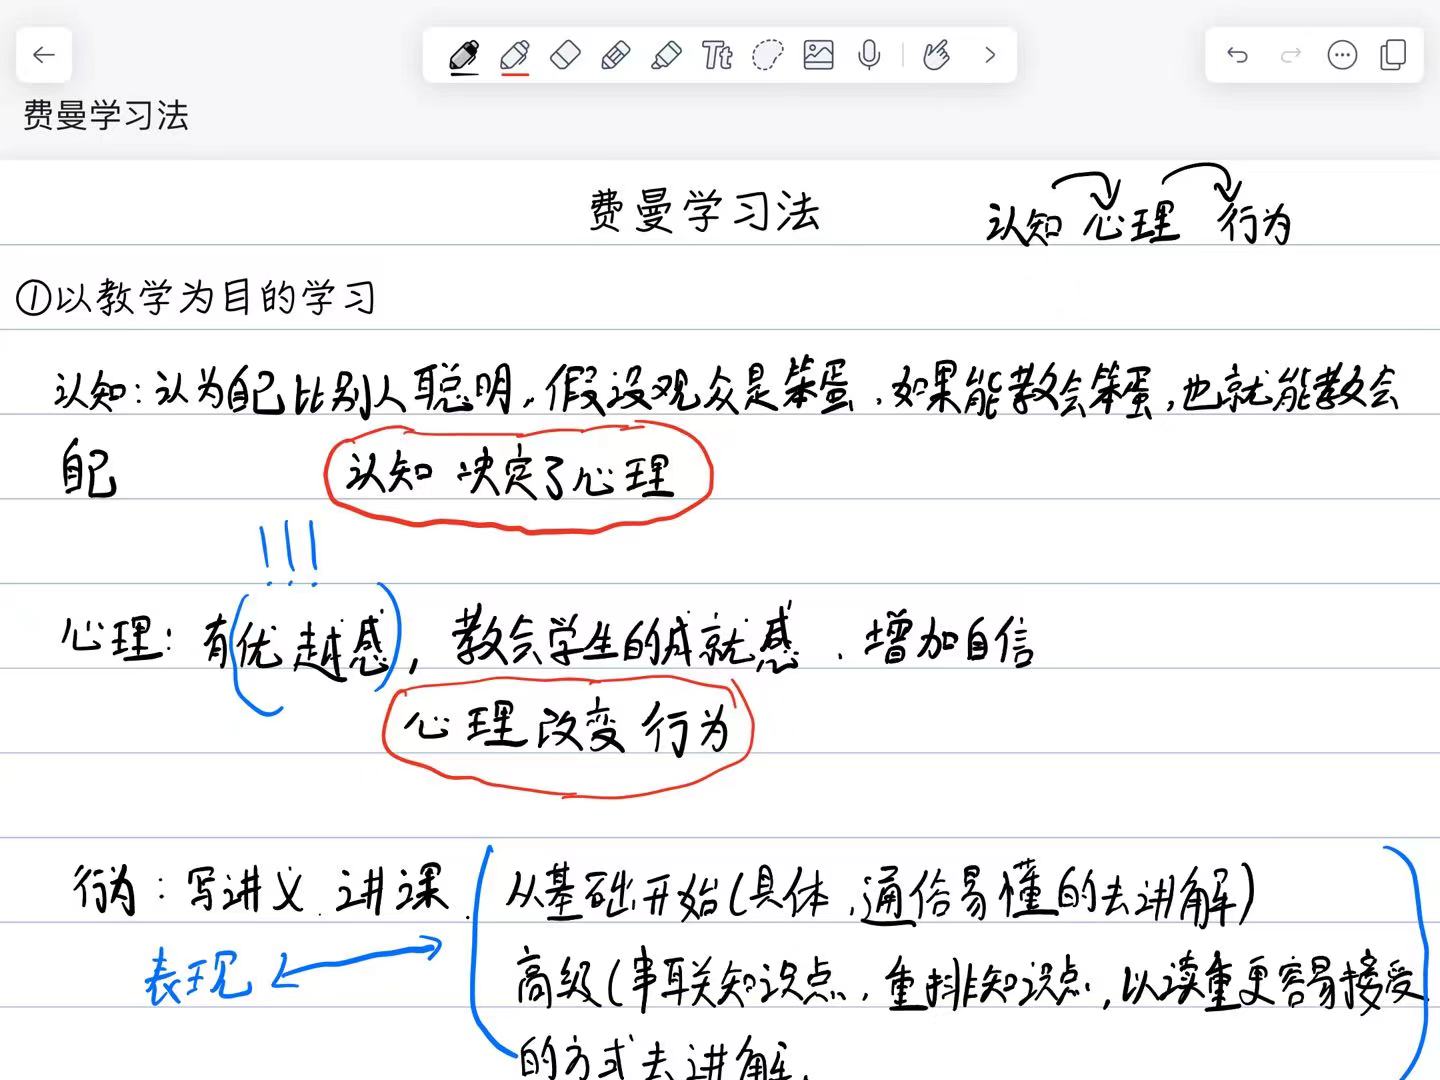 Tt
费曼学习法
费曼学习法
认知 心理 行为
①以教学为目的学习
认知：认为自己比别人聪明，假设观众是笨蛋，如果能教会笨蛋，也就能教会
自己
认知 决定了心理
!!!
心理：有优越感，教会学生的成就感、增加自信
心理改变行为
行为：写讲义、讲课、
从基础开始(具体，通俗易懂的去讲解)
表现
高级(串联关知识点，重排知识点，以读重更容易接受
的方式去讲解.